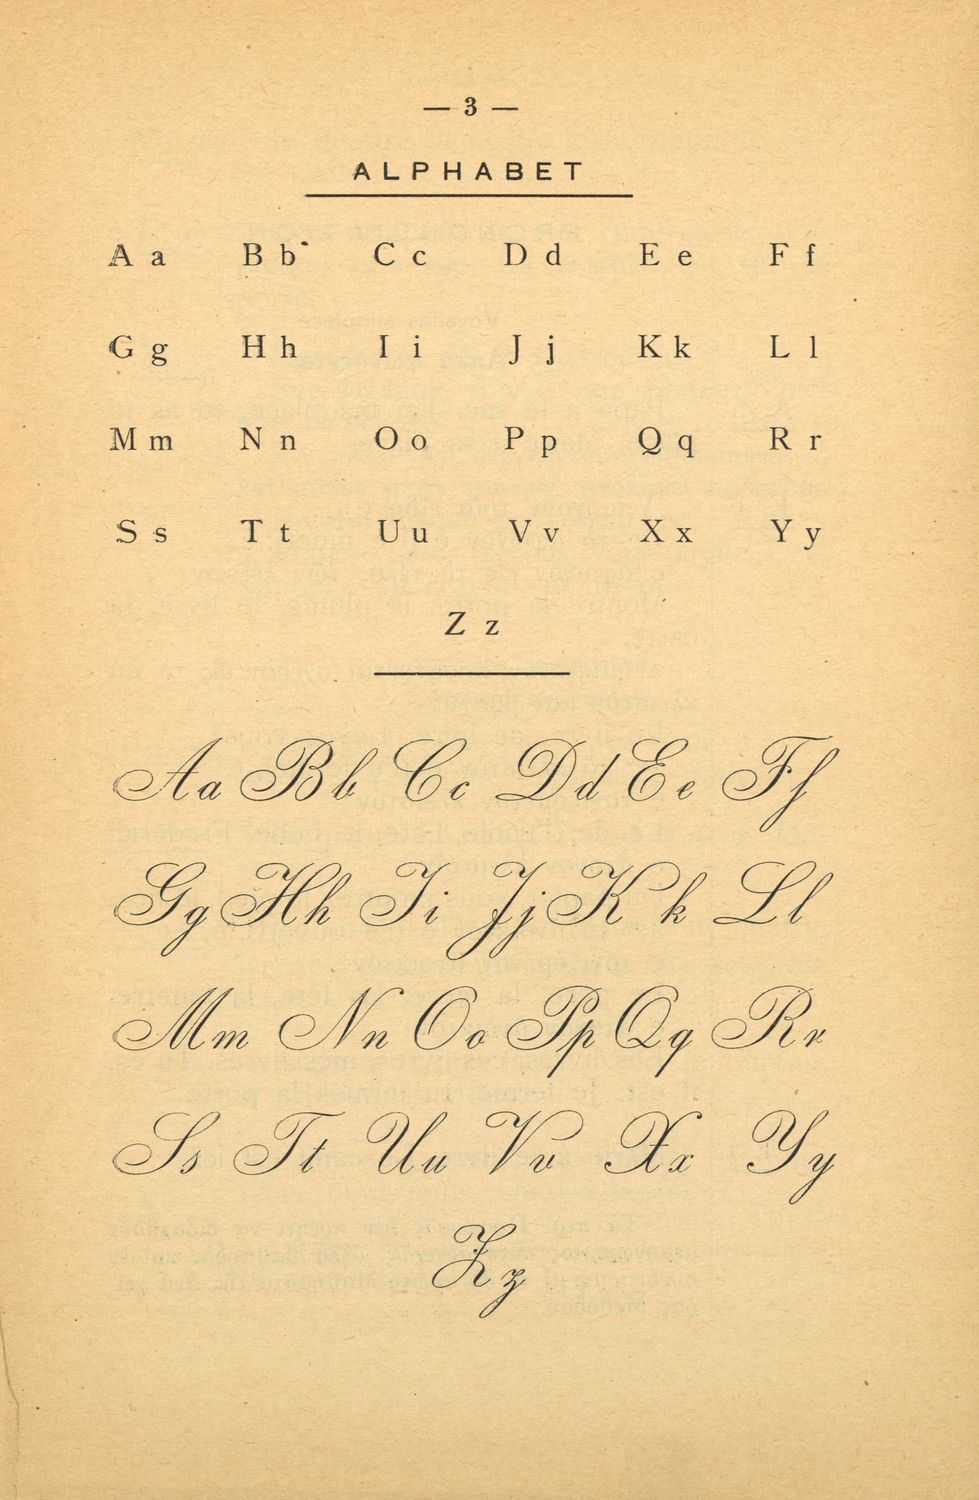 — 3 —
ALPHABET
A a B b C c D d E e F f
G g H h I i J j K k L l
M m N n O o P p Q q R r
S s T t U u V v X x Y y
Z z
A a B b C c D d E e F f
G g H h I i J j K k L l
M m N n O o P p Q q R r
S s T t U u V v X x Y y
Z z